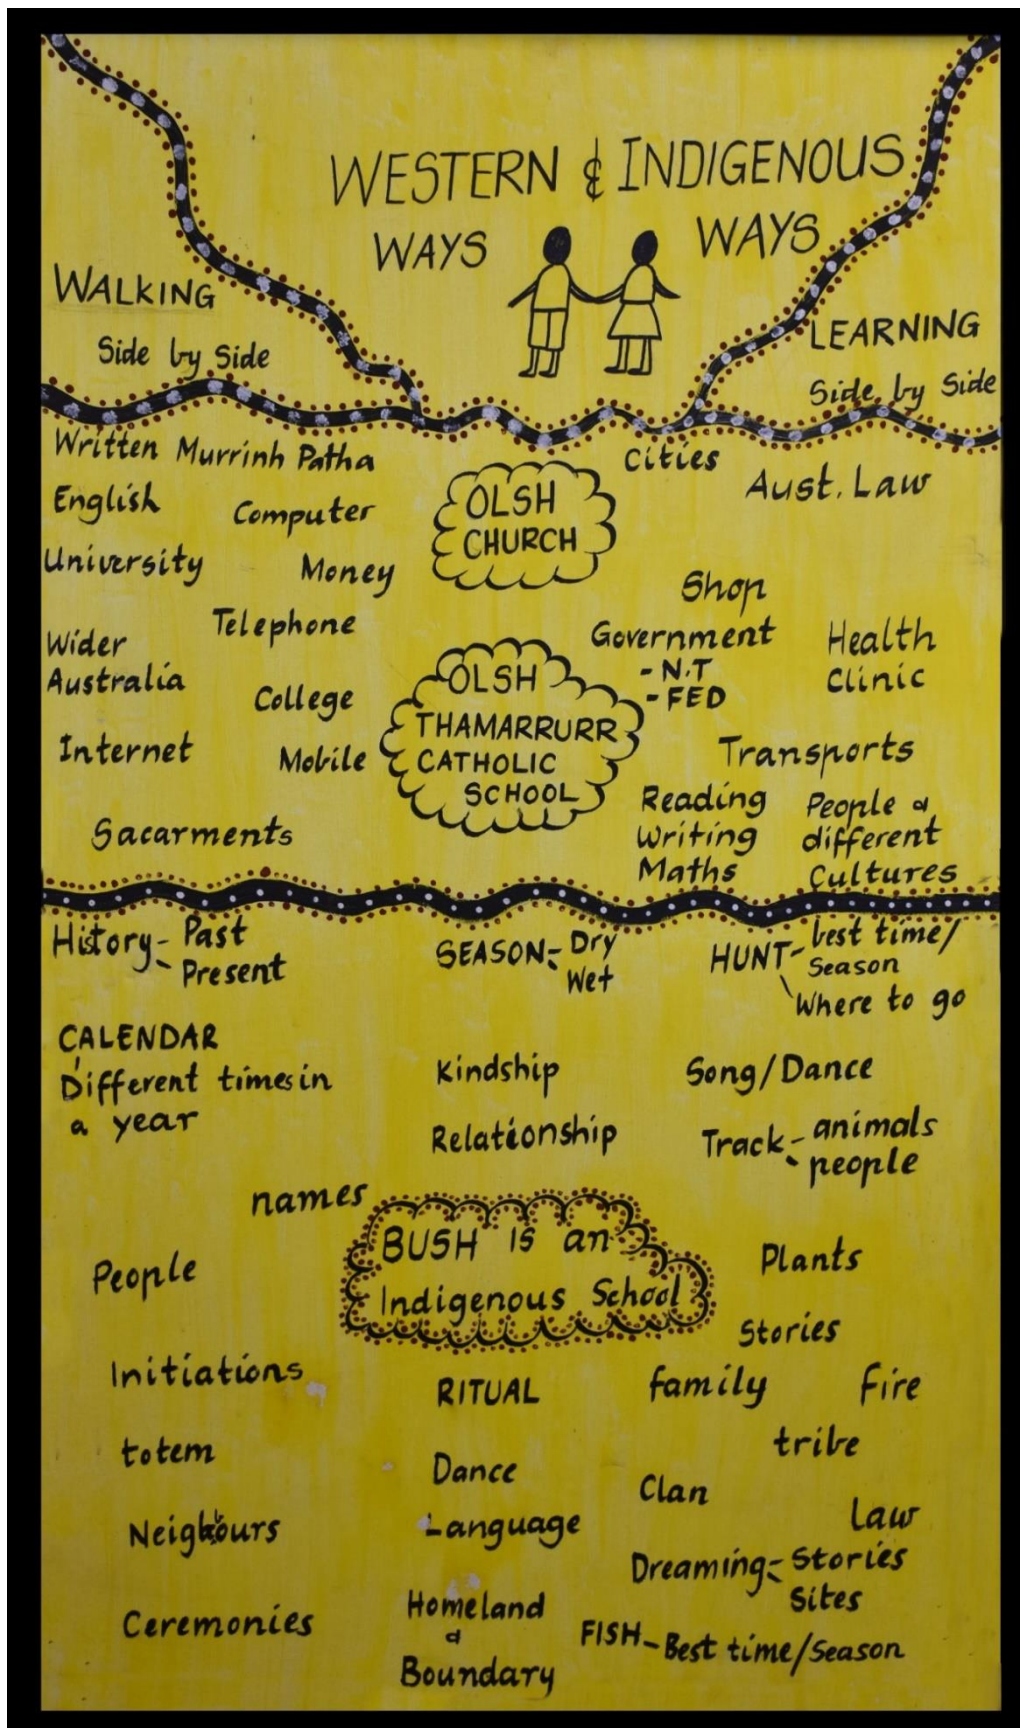 WESTERN & INDIGENOUS
WAYS WAYS
WALKING
Side by Side
LEARNING
Side by Side
Written Murrinh Patha
English
Computer
University
Money
Telephone
Wider
Australia
College
Internet
Mobile
Sacarments
OLSH
CHURCH
OLSH
THAMARRURR
CATHOLIC
SCHOOL
Cities
Aust. Law
Shop
Government
- N.T
- FED
Health
Clinic
Transports
Reading
Writing
Maths
People &
different
Cultures
History - Past
- Present
SEASON - Dry
- Wet
HUNT - best time/
Season
\ Where to go
CALENDAR
Different times in
a year
Kindship
Song/Dance
Relationship
Track - animals
- people
names
BUSH IS an
Indigenous School
People
Plants
Stories
Initiations
RITUAL
family
Fire
totem
tribe
Dance
Clan
Neighbours
Language
Law
Dreaming - Stories
Sites
Ceremonies
Homeland
&
Boundary
FISH - Best time/Season